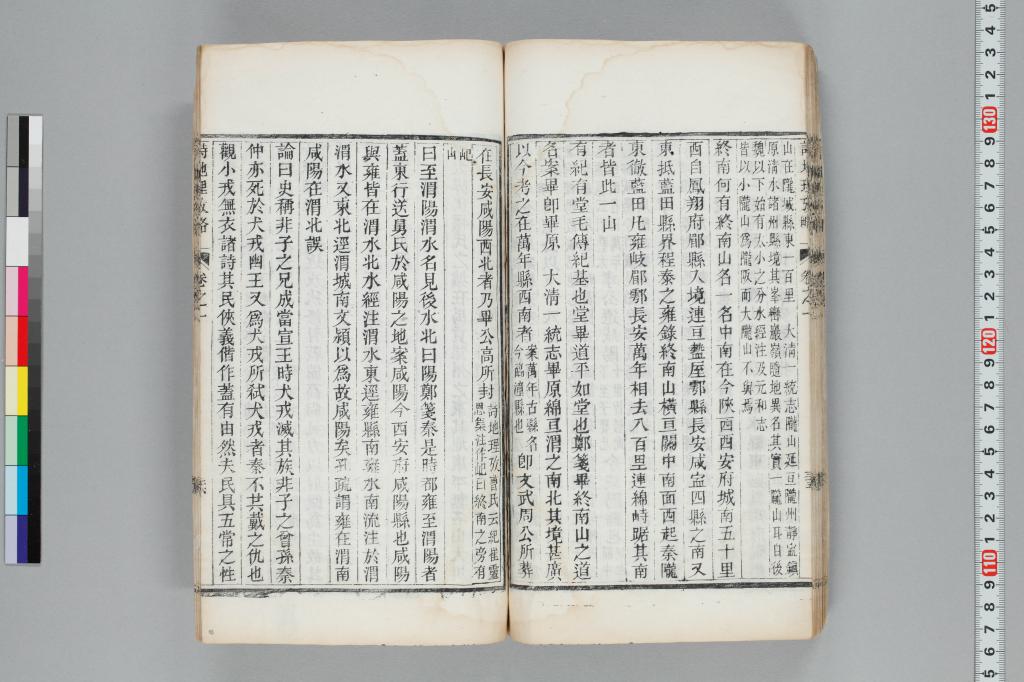 山在隴城縣東一百里　大清一統志隴山延亘隴州靜寧鎮
原清水諸州縣境其峯巒巖嶺隨地異名其實一隴山耳自後
魏以下始有大小之分水經注及元和志
皆以小隴山為隴阪而大隴山不與焉
終南何有終南山名一名中南在今陝西西安府城南五十里
西自鳳翔府郿縣入境連亘盩厔鄠縣長安咸寧四縣之南又
東抵藍田縣界程泰之雍錄終南山橫亘關中南面西起秦隴
東徹藍田凡雍岐郿鄠長安萬年相去八百里連綿峙踞其南
者皆此一山
有紀有堂毛傳紀基也堂畢道平如堂也鄭箋畢終南山之道
名案畢卽畢原　大清一統志畢原綿亘渭之南北其境甚廣
以今考之在萬年縣西南者案萬年古縣名今臨潼縣也卽文武周公所葬
在長安咸陽西北者乃畢公高所封詩地理攷曹氏云紀崔靈恩集注作屺曰終南之旁有
屺山
曰至渭陽渭水名見後水北曰陽鄭箋秦是時都雍至渭陽者
蓋東行送舅氏於咸陽之地案咸陽今西安府咸陽縣也咸陽
與雍皆在渭水北水經注渭水東逕雍縣南雍水南流注於渭
渭水又東北逕渭城南文穎以為故咸陽矣孔疏謂雍在渭南
咸陽在渭北誤
論曰史稱非子之兄成當宣王時犬戎滅其族非子之曾孫秦
仲亦死於犬戎幽王又為犬戎所弒犬戎者秦不共戴之仇也
觀小戎無衣諸詩其民俠義偕作蓋有由然夫民具五常之性
詩地理攷略
卷之一